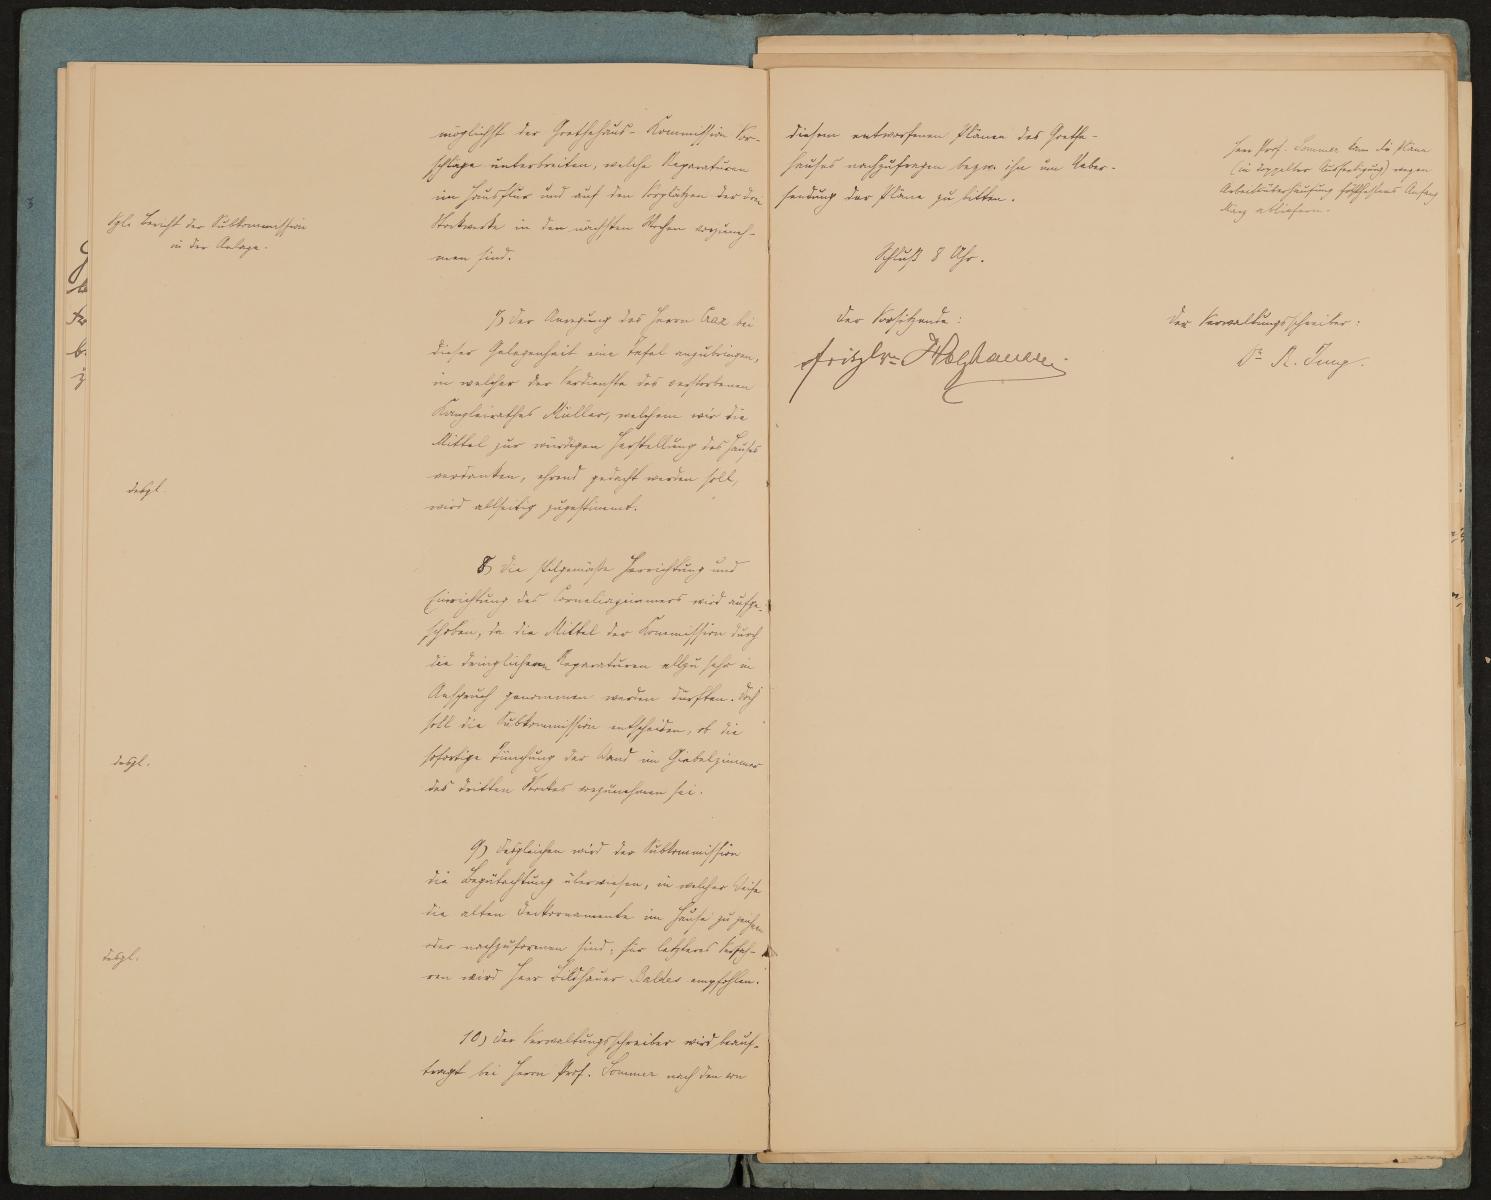 möglichst der Goethehaus-Kommission Vor-
schläge unterbreiten, welche Reparaturen
im Hausflur und auf den Vorplätzen der drei
Stockwerke in den nächsten Wochen vorzuneh-
men sind.
Vgl. Bericht der Subkommission
in der Anlage.
7) Der Anregung des Herrn Cöaz bei
dieser Gelegenheit eine Tafel anzubringen,
in welcher der Verdienste des verstorbenen
Kanzleirathes Müller, welchem wir die
Mittel zur würdigen Herstellung des Hauses
verdanken, ehrend gedacht werden soll,
wird allseitig zugestimmt.
desgl.
8) Die stilgemäße Herrichtung und
Einrichtung des Corneliazimmers wird aufge-
schoben, da die Mittel der Kommission durch
die dringlicheren Reparaturen allzu sehr in
Anspruch genommen werden durften. Doch
soll die Subkommission entscheiden, ob die
sofortige Tünchung der Wand im Giebelzimmer
des dritten Stockes vorzunehmen sei.
desgl.
9) Desgleichen wird der Subkommission
die Begutachtung überwiesen, in welcher Weise
die alten Deckornamente im Hause zu
oder nachzuformen sind; für letzteres Verfah-
ren wird Herr Bildhauer Baldes empfohlen.
desgl.
10) Der Verwaltungsschreiber wird beauf-
tragt bei Herrn Prof. Sommer nach den von
diesem entworfenen Plänen des Goethe-
hauses nachzufragen bezw. ihn um Ueber-
sendung der Pläne zu bitten.
Herr Prof. Sommer kann die Pläne
(in doppelter Ausfertigung) wegen
Arbeitsüberhäufung frühestens Anfang
May abliefern.
Schluß 8 Uhr.
Der Vorsitzende:
Der Verwaltungsschreiber:
Holzhausen
Dr R. Jung.